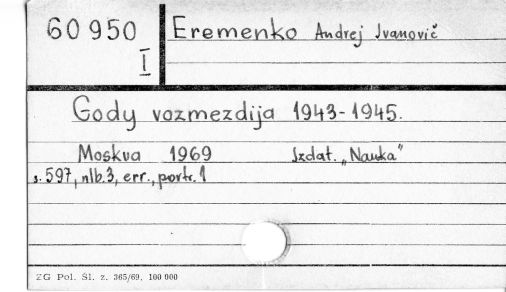 60 950 Eremenko Andrej Ivanovič
I
Gody vozmezdija 1943-1945.
Moskva 1969 Izdat. „Nauka"
s. 597, nlb. 3, err., portr. 1
ZG Pol. Śl. z. 365/69, 100 000